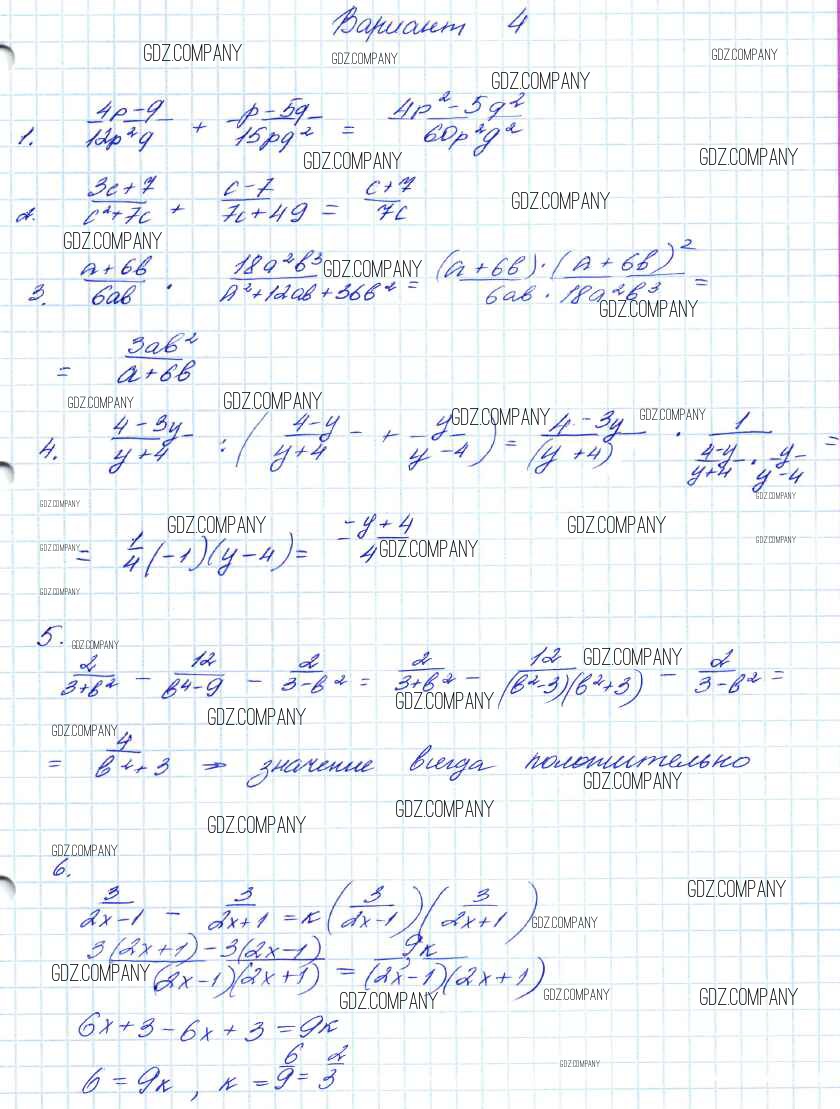 Вариант 4
GDZ.COMPANY GDZ.COMPANY GDZ.COMPANY
GDZ.COMPANY
1. (4p-q)/(12p²q) + (p-5q)/(15pq²) = (4p²-5q²)/(60p²q²)
GDZ.COMPANY GDZ.COMPANY
2. (3c+7)/(c²+7c) + (c-7)/(7c+49) = (c+7)/(7c)
GDZ.COMPANY
GDZ.COMPANY
3. (a+6b)/(6ab) · (18a²b³)/(a²+12ab+36b²) = ((a+6b)·(a+6b)²)/(6ab·18a²b³) =
GDZ.COMPANY
GDZ.COMPANY
= (3ab²)/(a+6b)
GDZ.COMPANY GDZ.COMPANY
GDZ.COMPANY GDZ.COMPANY
4. (4-3y)/(y+4) : ((4-y)/(y+4) + y/(y-4)) = (4-3y)/(y+4) · 1/((4-y)/(y+4) · y/(y-4)) =
GDZ.COMPANY GDZ.COMPANY
GDZ.COMPANY GDZ.COMPANY
= 1/4 (-1)(y-4) = (-y+4)/4
GDZ.COMPANY GDZ.COMPANY GDZ.COMPANY
GDZ.COMPANY
5.
GDZ.COMPANY GDZ.COMPANY
2/(3+b²) - 12/(b⁴-9) - 2/(3-b²) = 2/(3+b²) - 12/((b²-3)(b²+3)) - 2/(3-b²) =
GDZ.COMPANY
GDZ.COMPANY
GDZ.COMPANY
= 4/(b²+3) ⇒ значение всегда положительно
GDZ.COMPANY
GDZ.COMPANY
GDZ.COMPANY
GDZ.COMPANY
6.
GDZ.COMPANY
3/(2x-1) - 3/(2x+1) = k(3/(2x-1))(3/(2x+1))
GDZ.COMPANY
(3(2x+1)-3(2x-1))/((2x-1)(2x+1)) = 9k/((2x-1)(2x+1))
GDZ.COMPANY
GDZ.COMPANY GDZ.COMPANY GDZ.COMPANY
6x+3-6x+3=9k
GDZ.COMPANY
6=9k, k=6/9=2/3